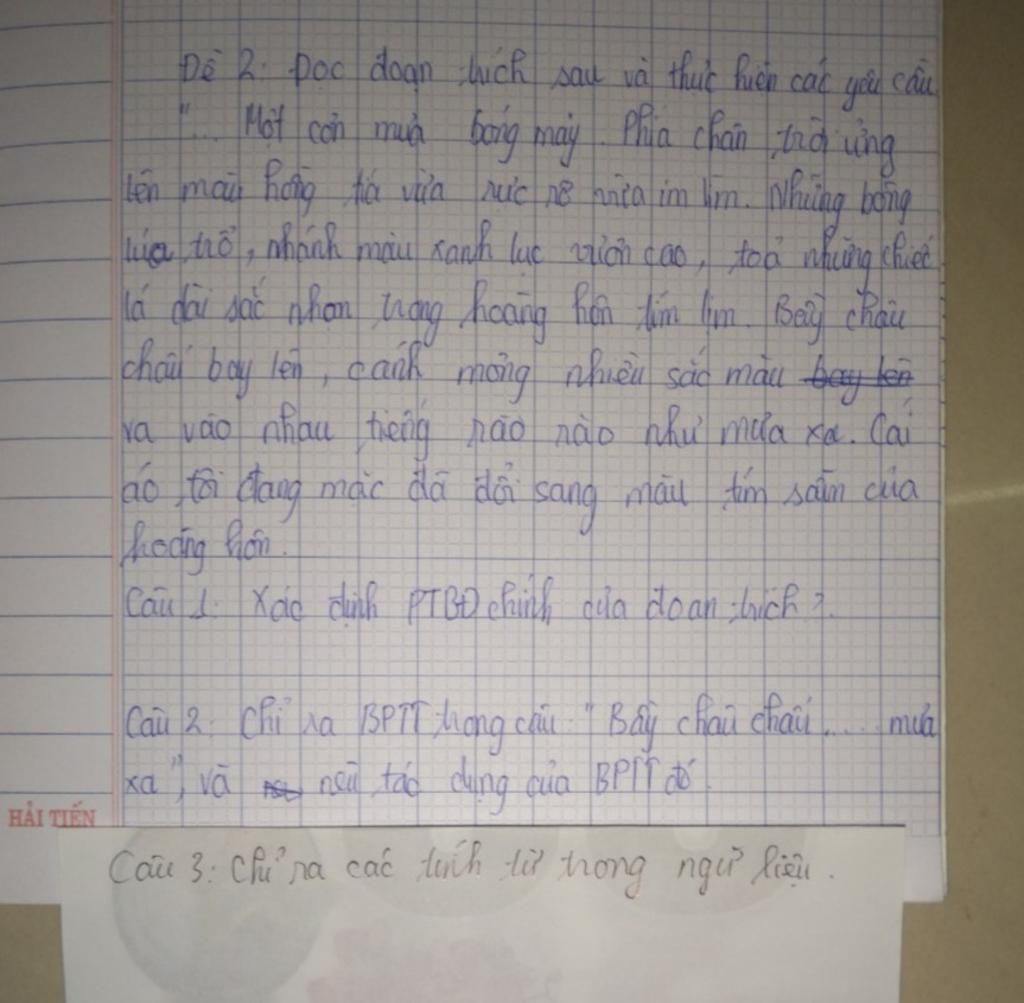 Đề 2: Đọc đoạn trích sau và thực hiện các yêu cầu
"... Một cơn mưa bóng mây. Phía chân trời ửng
lên màu hồng tía vừa rực rỡ vừa im lìm. Những bông
lúa trổ, nhánh màu xanh lục vươn cao, toả những chiếc
lá dài sắc nhọn trong hoàng hôn tím lịm. Bầy châu
chấu bay lên, cánh mỏng nhiều sắc màu bay lên
va vào nhau tiếng rào rào như mưa xa. Cái
áo tôi đang mặc đã đổi sang màu tím sẫm của
hoàng hôn.
Câu 1: Xác định PTBĐ chính của đoạn trích?
Câu 2: Chỉ ra BPTT trong câu "Bầy châu chấu.... mưa
xa", và nêu tác dụng của BPTT đó.
HẢI TIẾN
Câu 3: Chỉ ra các tính từ trong ngữ liệu.